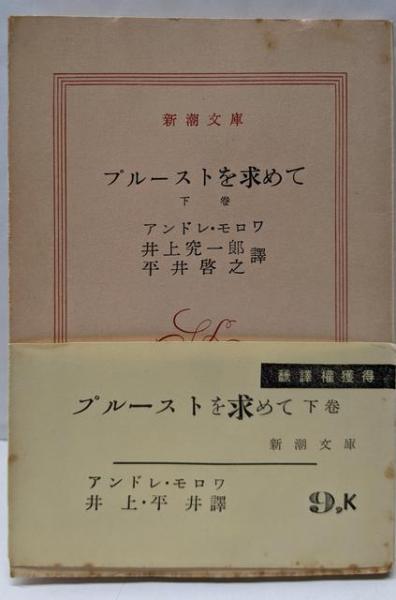 新潮文庫
プルーストを求めて
下巻
アンドレ・モロワ
井上究一郎
平井啓之
譯
飜譯權獲得
プルーストを求めて 下巻
新潮文庫
アンドレ・モロワ
井上・平井譯
9,K